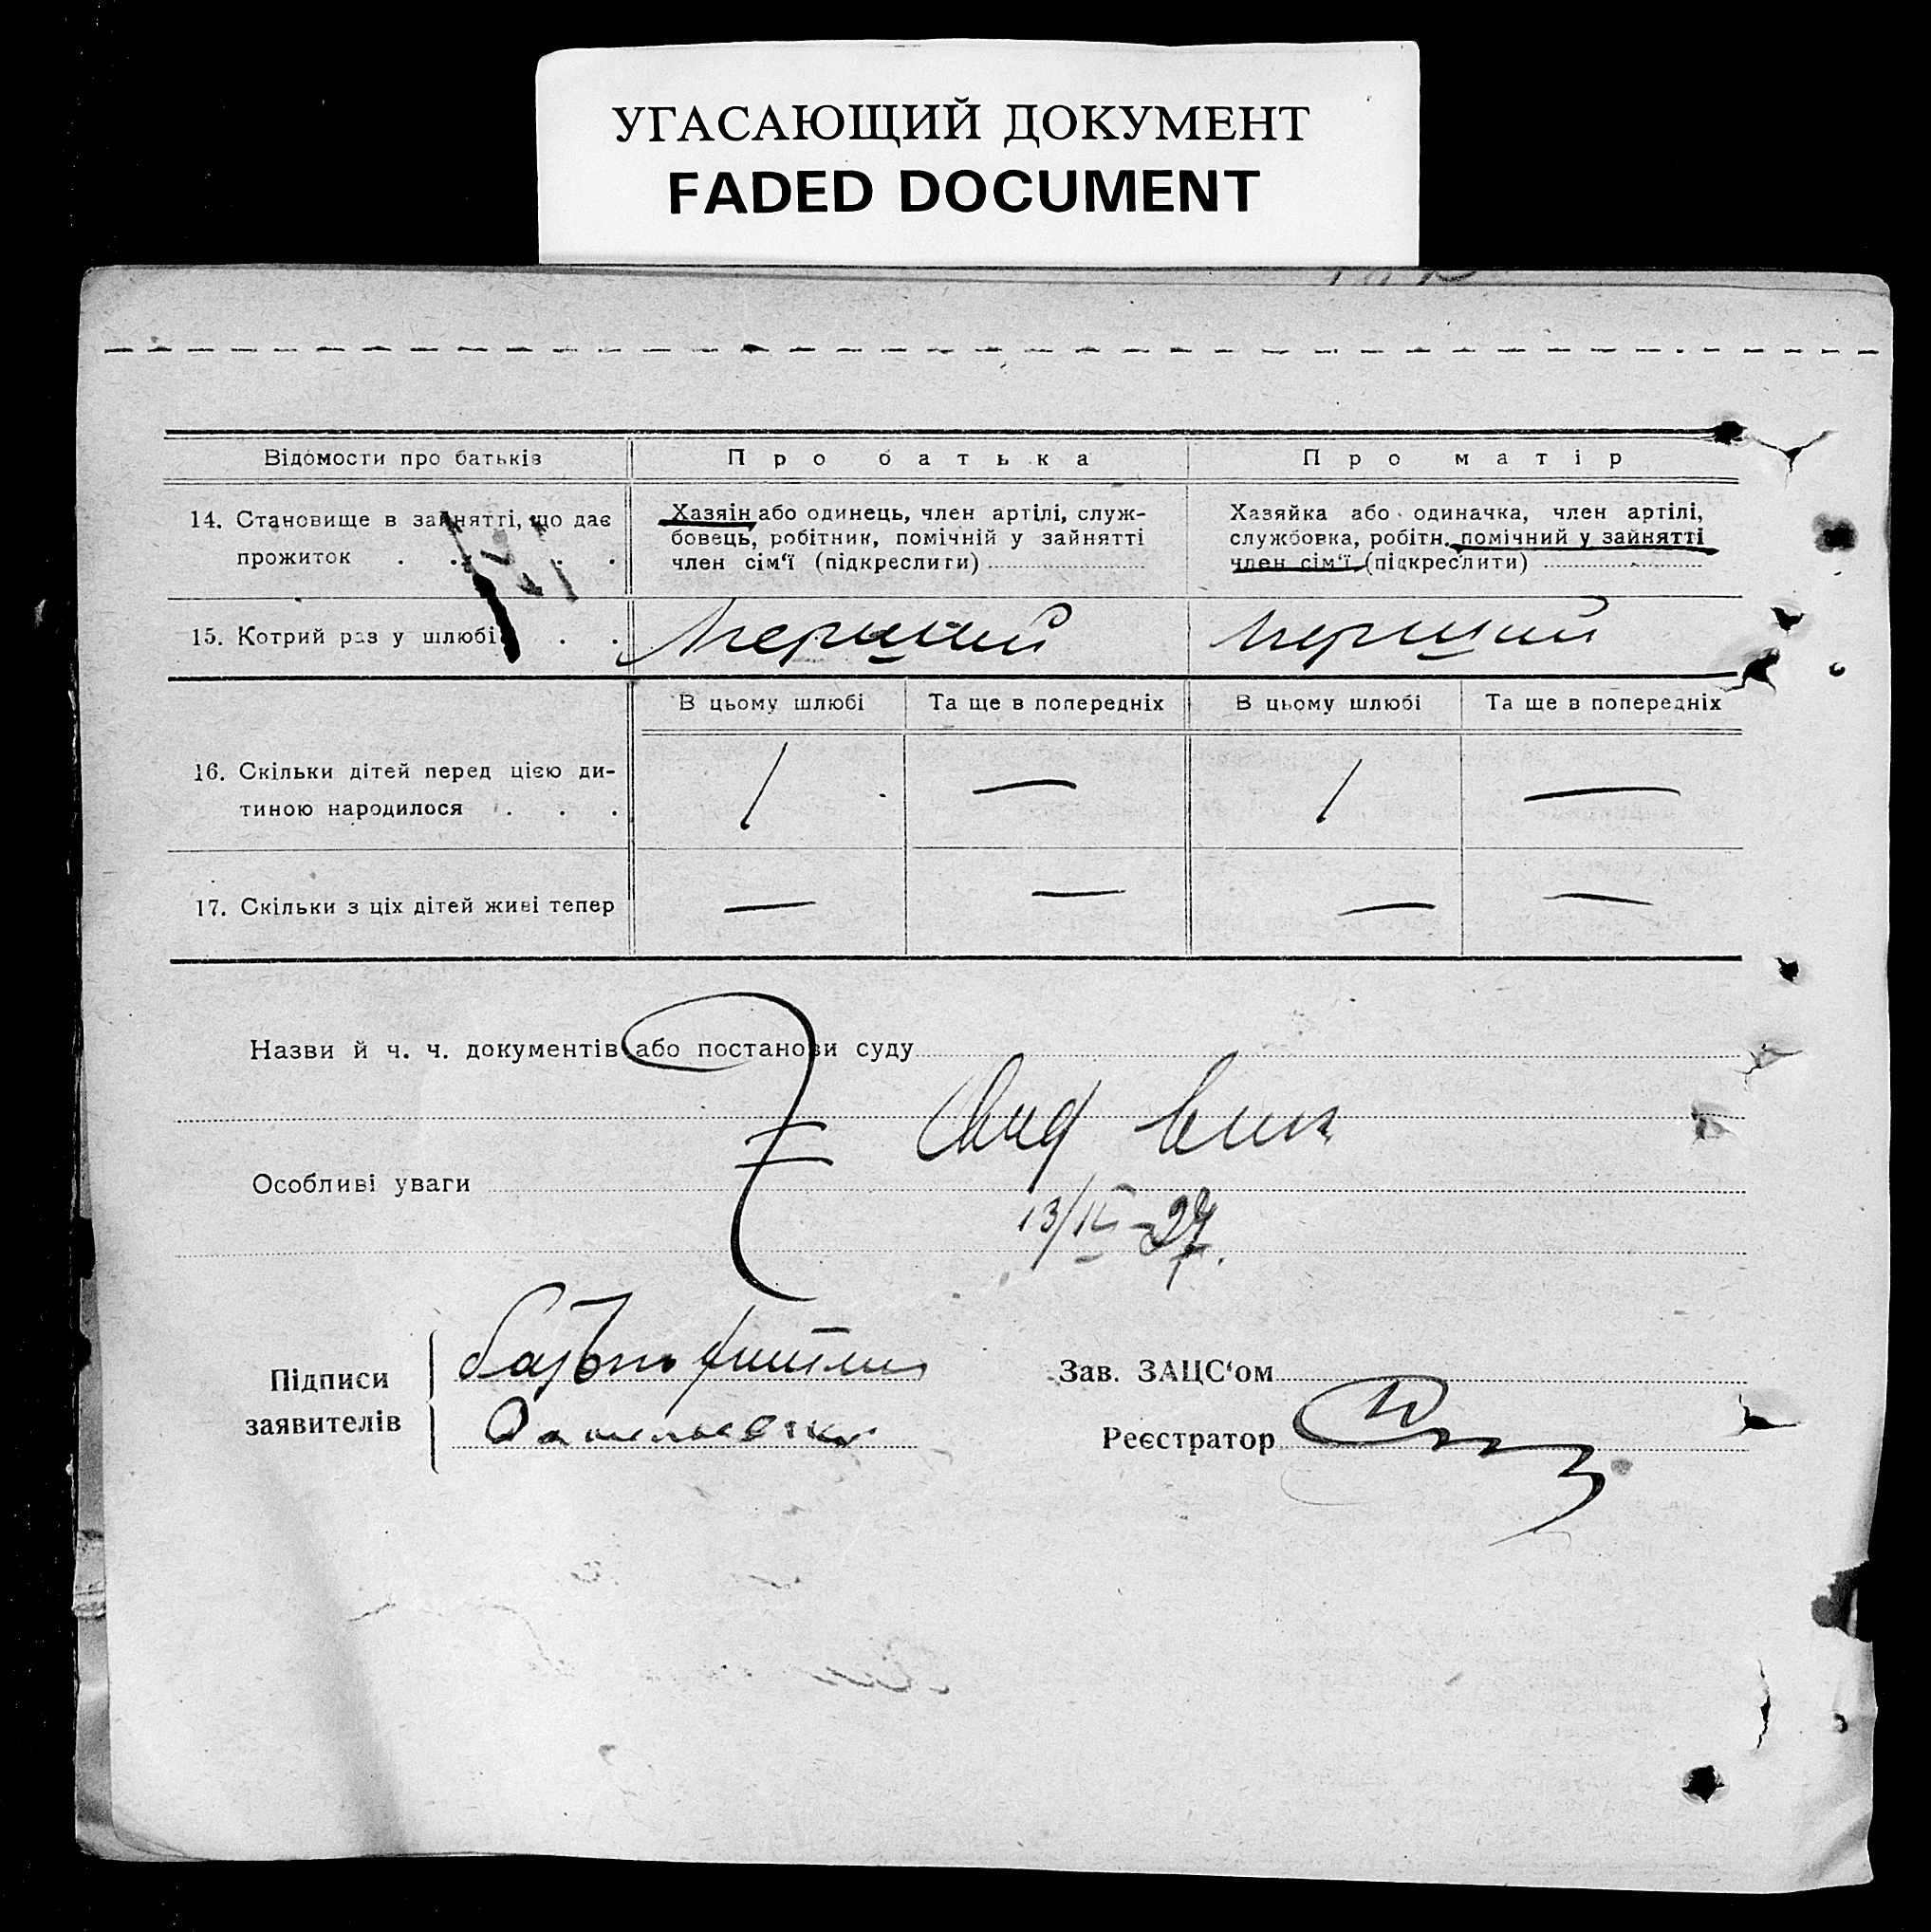 УГАСАЮЩИЙ ДОКУМЕНТ
FADED DOCUMENT
Відомости про батьків
Про батька
Про матір
14. Становище в зайнятті, що дає
прожиток . . . .
Хазяін або одинець, член артілі, служ-
бовець, робітник, помічній у зайнятті
член сім‘ї (підкреслити)
Хазяйка або одиначка, член артілі,
службовка, робітн. помічний у зайнятті
член сім‘ї (підкреслити)
15. Котрий раз у шлюбі . .
Перший
Перший
В цьому шлюбі
Та ще в попередніх
В цьому шлюбі
Та ще в попередніх
16. Скільки дітей перед цією ди-
тиною народилося . . .
1 — 1 —
17. Скільки з ціх дітей живі тепер
— — — —
Назви й ч. ч. документів або постанови суду
Особливі уваги
Підписи
заявителів
Зав. ЗАЦС‘ом
Реєстратор